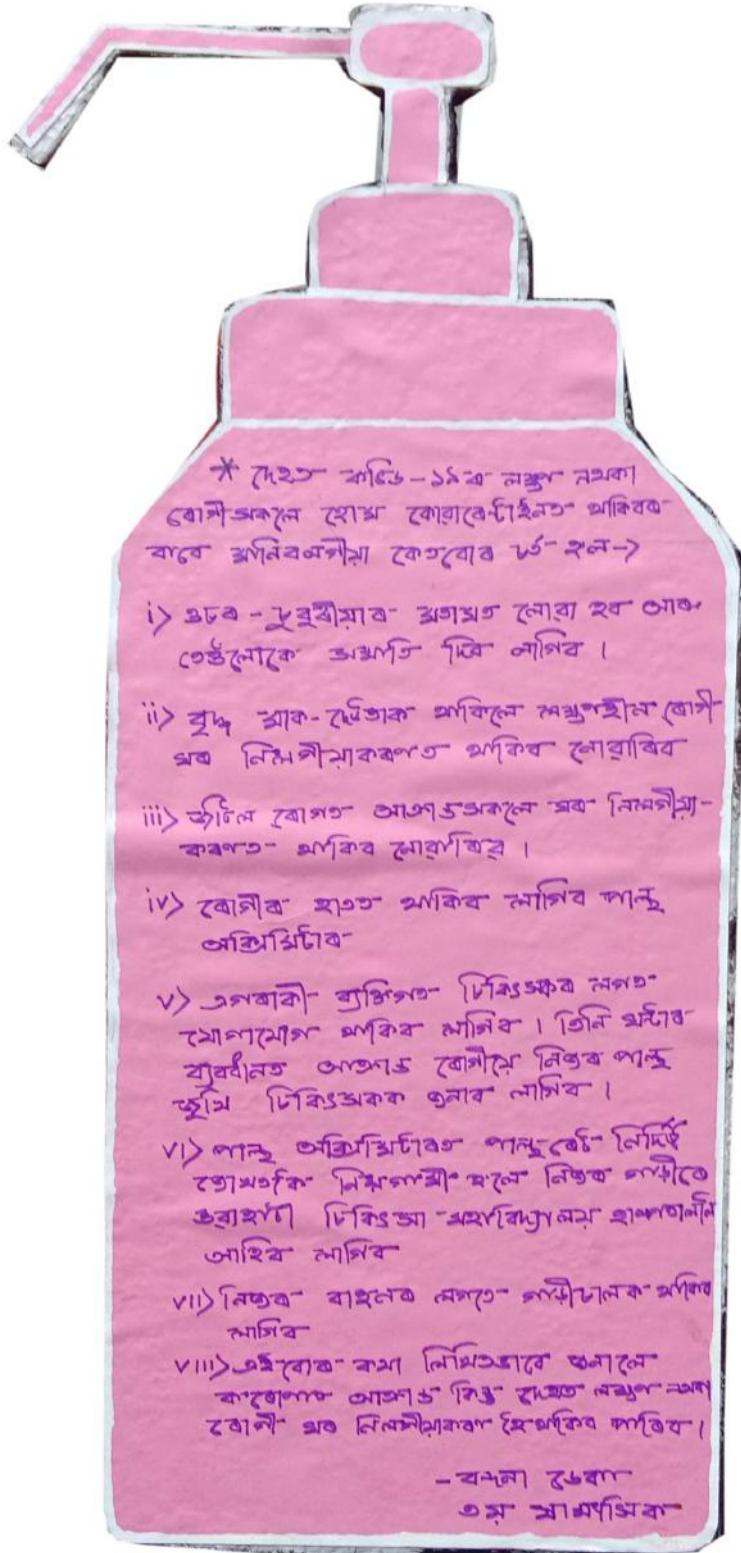 * দেহত কভিড-১৯ৰ লক্ষণ নথকা
ৰোগীসকলে হোম কোৱাৰেণ্টাইনত থাকিবৰ
বাবে মানিবলগীয়া কেতবোৰ চৰ্ত হ'ল->
i> ওচৰ-চুবুৰীয়াৰ মতামত লোৱা হব আৰু
তেওঁলোকে সন্মতি দিব লাগিব ।
ii> বৃদ্ধ মাক-দেউতাক থাকিলে লক্ষণহীন ৰোগী
ঘৰ নিলগীয়াকৰণত থাকিব নোৱাৰিব
iii> জটিল ৰোগত আক্ৰান্তসকলে ঘৰ নিলগীয়া-
কৰণত থাকিব নোৱাৰিব ।
iv> ৰোগীৰ হাতত থাকিব লাগিব পাল্চ
অক্সিমিটাৰ
v> এগৰাকী ব্যক্তিগত চিকিৎসকৰ লগত
যোগাযোগ থাকিব লাগিব । তিনি ঘন্টাৰ
ব্যৱধানত আক্ৰান্ত ৰোগীয়ে নিজৰ পাল্চ
জুখি চিকিৎসকক জনাব লাগিব ।
vi> পাল্চ অক্সিমিটাৰত পাল্চৰেট নিৰ্দিষ্ট
জোখতকৈ নিম্নগামী হলে নিজৰ গাড়ীৰে
গুৱাহাটী চিকিৎসা মহাবিদ্যালয় হাস্পতাললৈ
আহিব লাগিব
vii> নিজৰ বাহনৰ লগতে গাড়ীচালক থাকিব
লাগিব
viii> এইবোৰ কথা লিখিতভাৱে জনালে
কৰোণাত আক্ৰান্ত কিন্তু দেহত লক্ষণ নথকা
ৰোগী ঘৰ নিলগীয়াকৰণ হৈ থাকিব পাৰিব ।
- বন্দনা ডেকা
৩য় ষান্মাসিক